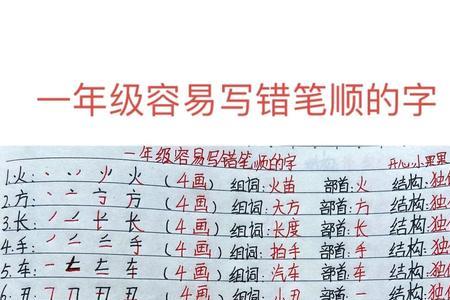 一年级容易写错笔顺的字
一年级容易写错笔顺的字 开心小果果
1.火: 丶 丷 少 火 (4画) 组词:火苗 部首:火 结构:独
2.方: 丶 亠 方 方 (4画) 组词:大方 部首:方 结构:独
3.长: 丿 一 长 长 (4画) 组词:长度 部首:长 结构:独
4.手: 一 二 三 手 (4画) 组词:拍手 部首:手 结构:独
5.车: 一 七 三 车 (4画) 组词:汽车 部首:车 结构:独
6.丑: 丑 (4画) 组词:小丑 部首:一 结构:独